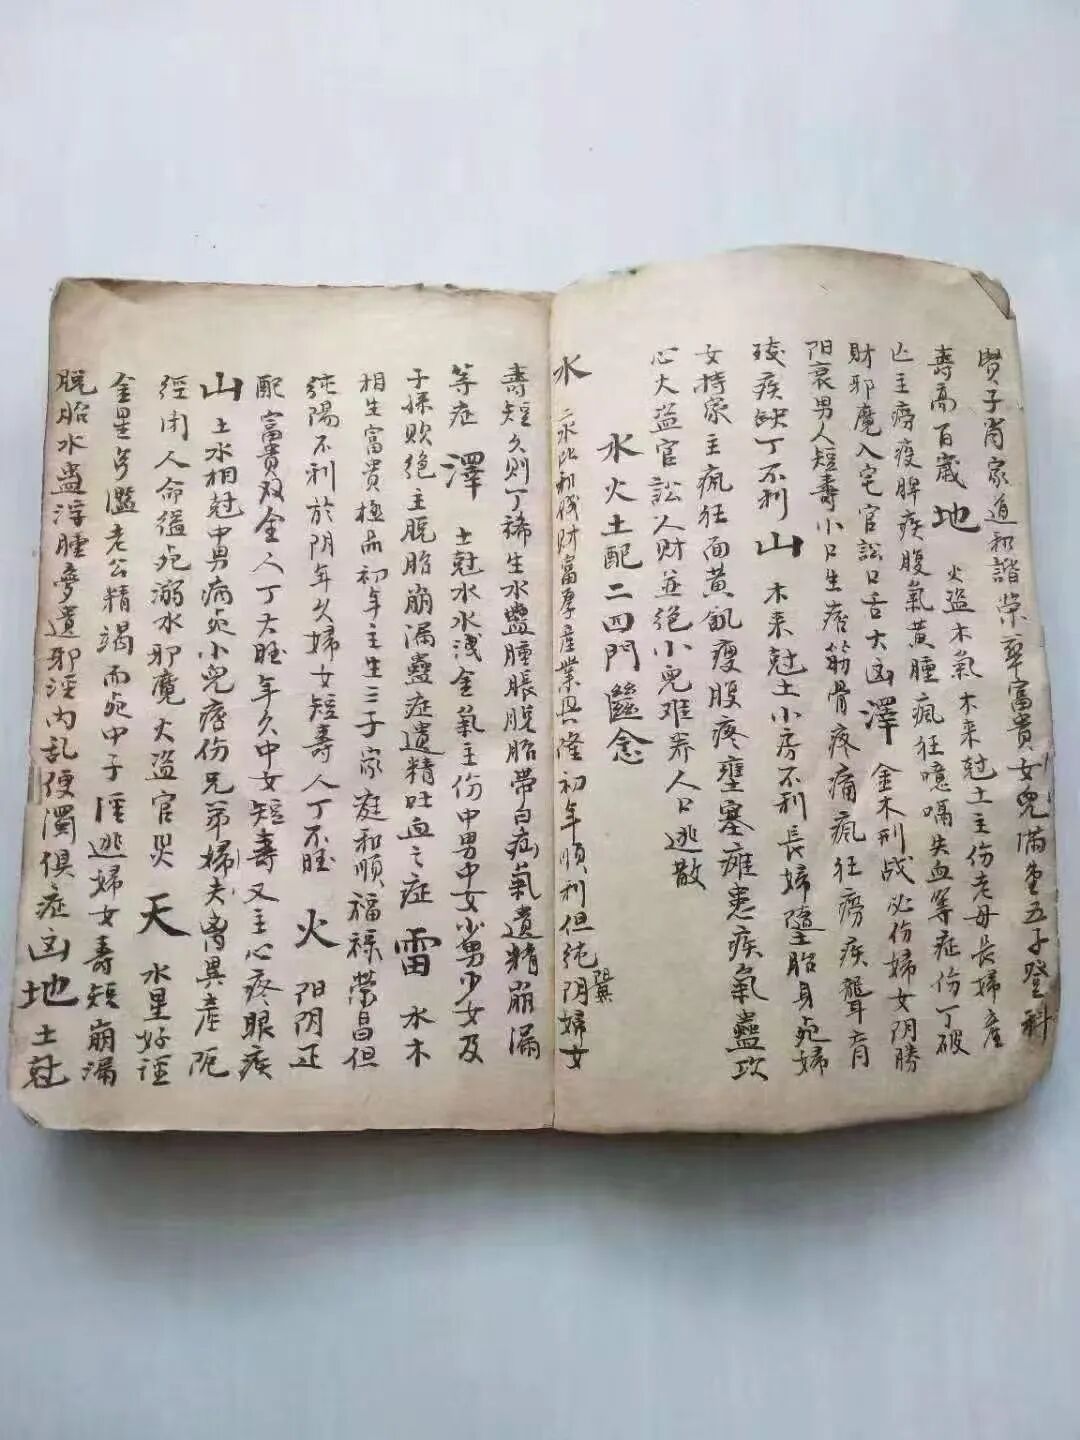 賢子肖家道和諧榮華富貴女兒滿堂五子登科
壽高百歲 地 火盜木氣木来尅土主伤老母長婦產
亡主痨疫脾疾腹氣黄腫瘋狂噫嗝失血等症伤丁破
財邪魔入宅官訟口舌大凶 澤 金木刑战必伤婦女阴勝
阳衰男人短壽小口生疳筋骨疼痛瘋狂痨疾聾盲
疾缺丁不利 山 木来尅土小房不利長婦墮胎身死婦
女持家主瘋狂面黄飢瘦腹疼壅塞瘫患疾氣蠱攻
心火盜官訟人财並绝小兒难养人口逃散
水火土配二四門
水 二水比和伐财富厚產業兴隆初年顺利但纯阴婦女
壽短久则丁稀生水蠱腫脹脱胎带白疝氣遺精崩漏
等症 澤 土尅水水洩金氣主伤中男中女少男少女及
子孫败绝主脱胎崩漏症遺精吐血之症 雷 水木
相生富贵極品初年主生三子家庭和顺福禄荣昌但
纯陽不利於阴年久婦女短壽人丁不旺 火 阳阴正
配富贵双全人丁大旺年久中女短壽又主心疼眼疾
山 土水相尅中男病死小兒疳伤兄弟婦夫異產阨
經闭人命缢死溺水邪魔火盜官災 天 水里好淫
金星老公精竭而死中子淫逃婦女壽短崩漏
脱胎水蠱浮腫夢遺邪淫内乱便濁俱症凶 地 土尅